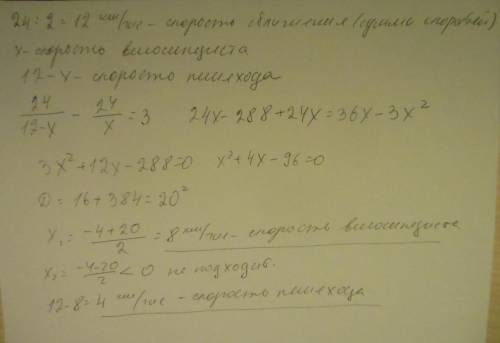 24 : 2 = 12 км/час - скорость сближения (сумма скоростей)
x - скорость велосипедиста
12-x - скорость пешехода
24/(12-x) - 24/x = 3   24x - 288 + 24x = 36x - 3x²
3x² + 12x - 288 = 0   x² + 4x - 96 = 0
D = 16 + 384 = 20²
x₁ = (-4+20)/2 = 8 км/час - скорость велосипедиста
x₂ = (-4-20)/2 < 0 не подходит.
12-8=4 км/час - скорость пешехода